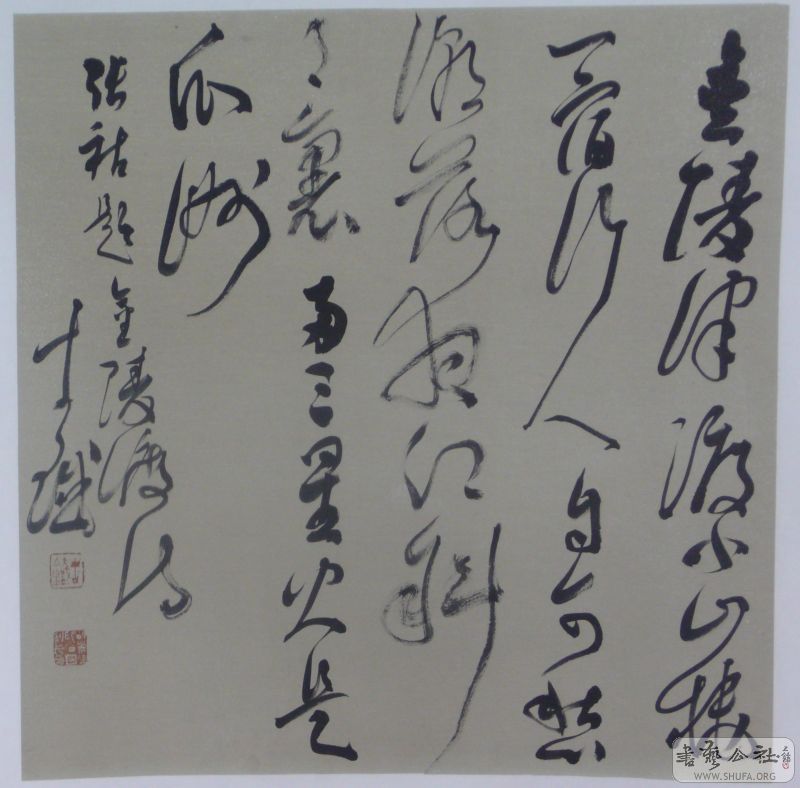 金陵津渡小山樓
一宿行人自可愁
潮落夜江斜
月裏兩三星火是
瓜洲
張祜題金陵渡詩
書藝公社
WWW.SHUFA.ORG